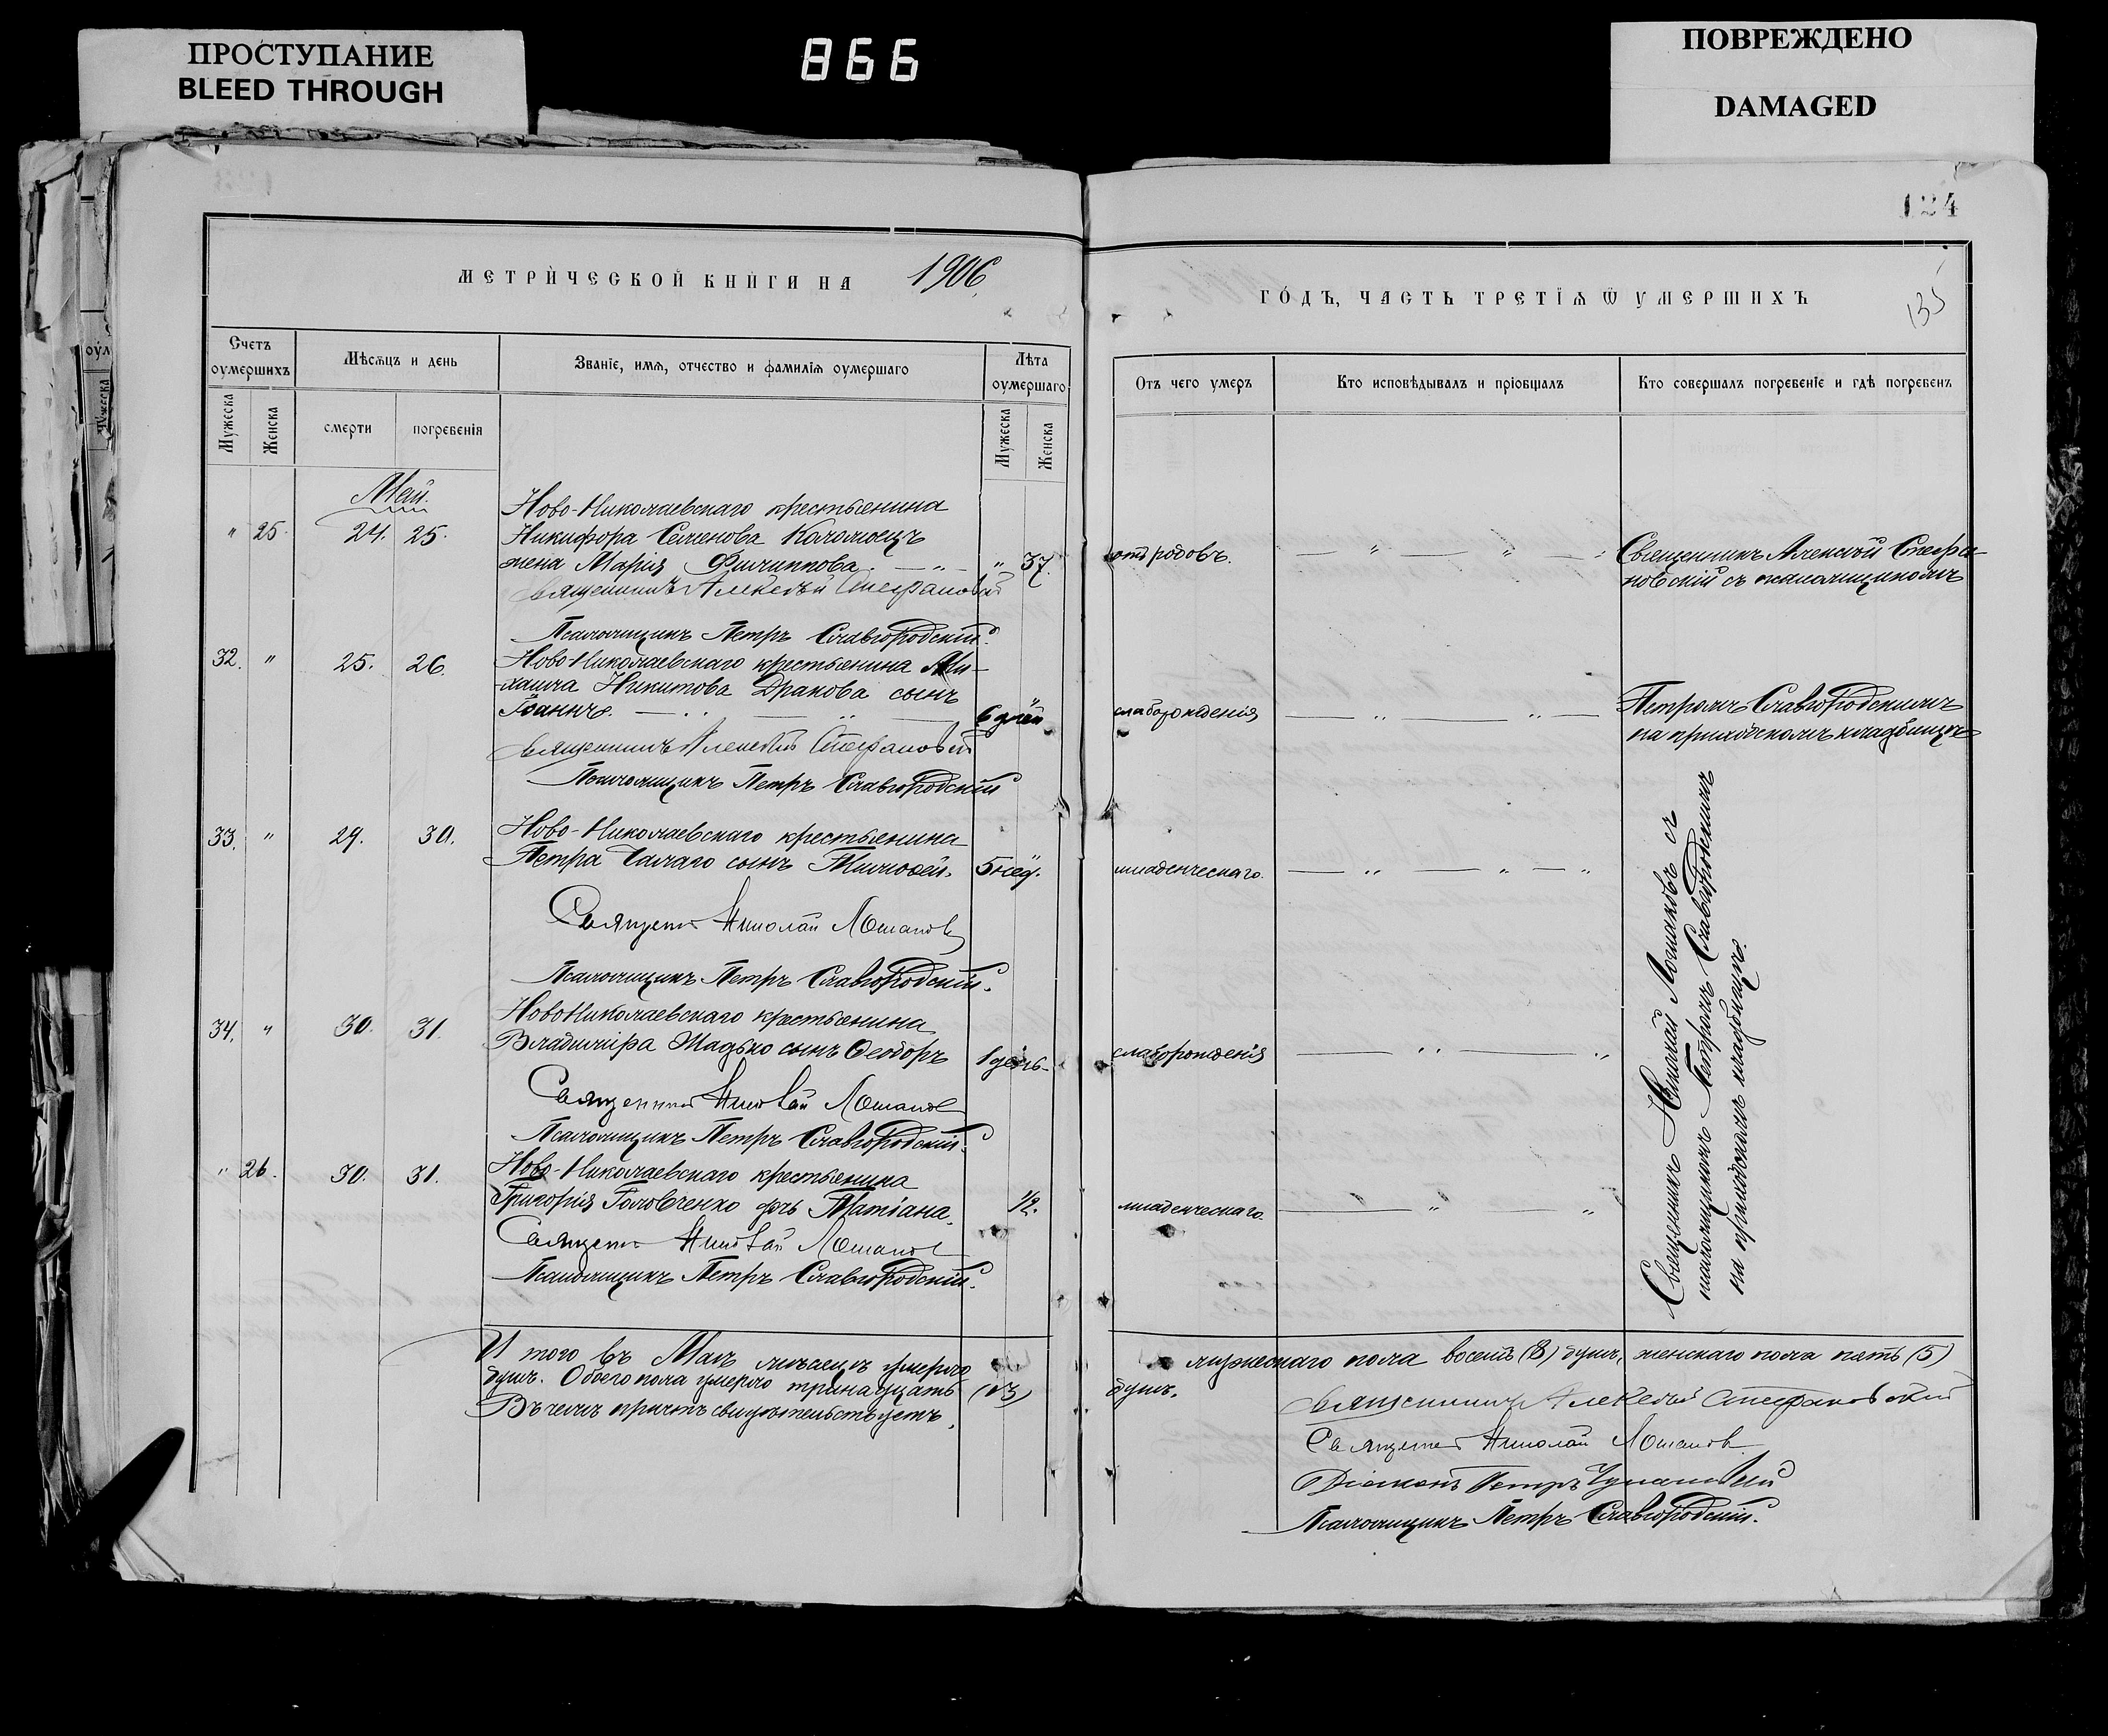 ПРОСТУПАНИЕ
BLEED THROUGH
866
ПОВРЕЖДЕНО
DAMAGED
124
135
МЕТРИЧЕСКОЙ КНИГИ НА 1906
ГОДЪ, ЧАСТЬ ТРЕТІѦ Ѿ УМЕРШИХЪ
Счетъ оумершихъ
Мужеска
Женска
Мѣсѧцъ и день
смерти
погребенія
Званіе, имѧ, отчество и фамиліѧ оумершаго
Лѣта оумершаго
Мужеска
Женска
Отъ чего умеръ
Кто исповѣдывалъ и пріобщалъ
Кто совершалъ погребеніе и гдѣ погребенъ
Май.
Ново-Николаевскаго крестьянина
" 25. 24. 25. Никифора Семенова Коломоецъ
жена Марія Филиппова. " 37. отъ родовъ. Священникъ Алексѣй Стефа-
новскій съ псаломщикомъ
Священникъ Алексѣй Стефановскій
Псаломщикъ Петръ Славгородскій.
32. " 25. 26. Ново-Николаевскаго крестьянина Ми-
хаила Никитова Дракова сынъ
Іоаннъ. 6 дней слаборожденія Петромъ Славгородскимъ
на приходскомъ кладбищѣ
Священникъ Алексѣй Стефановскій
Псаломщикъ Петръ Славгородскій
33. " 29. 30. Ново-Николаевскаго крестьянина
Петра сынъ Тимоѳей. 5 нед. младенческаго.
Священникъ Николай Лошаковъ
Псаломщикъ Петръ Славгородскій.
34. " 30. 31. Ново Николаевскаго крестьянина
Владиміра Шадько сынъ Ѳеодоръ 1 день слаборожденія
Священникъ Николай Лошаковъ
Псаломщикъ Петръ Славгородскій.
" 26. 30. 31. Ново-Николаевскаго крестьянина
Григорія Головченко дчь Татіана. 1/2. младенческаго.
Священникъ Николай Лошаковъ
Псаломщикъ Петръ Славгородскій.
Священникъ Николай Лошаковъ съ
псаломщикомъ Петромъ Славгородскимъ
на приходскомъ кладбищѣ.
И того въ Маѣ мѣсяцѣ умерло мужескаго пола восемь (8) душъ, женскаго пола пять (5)
душъ. Обоего пола умерло тринадцать (13) душъ.
Въ чемъ причтъ свидѣтельствуетъ.
Священникъ Алексѣй Стефановскій
Священникъ Николай Лошаковъ
Діаконъ Петръ
Псаломщикъ Петръ Славгородскій.